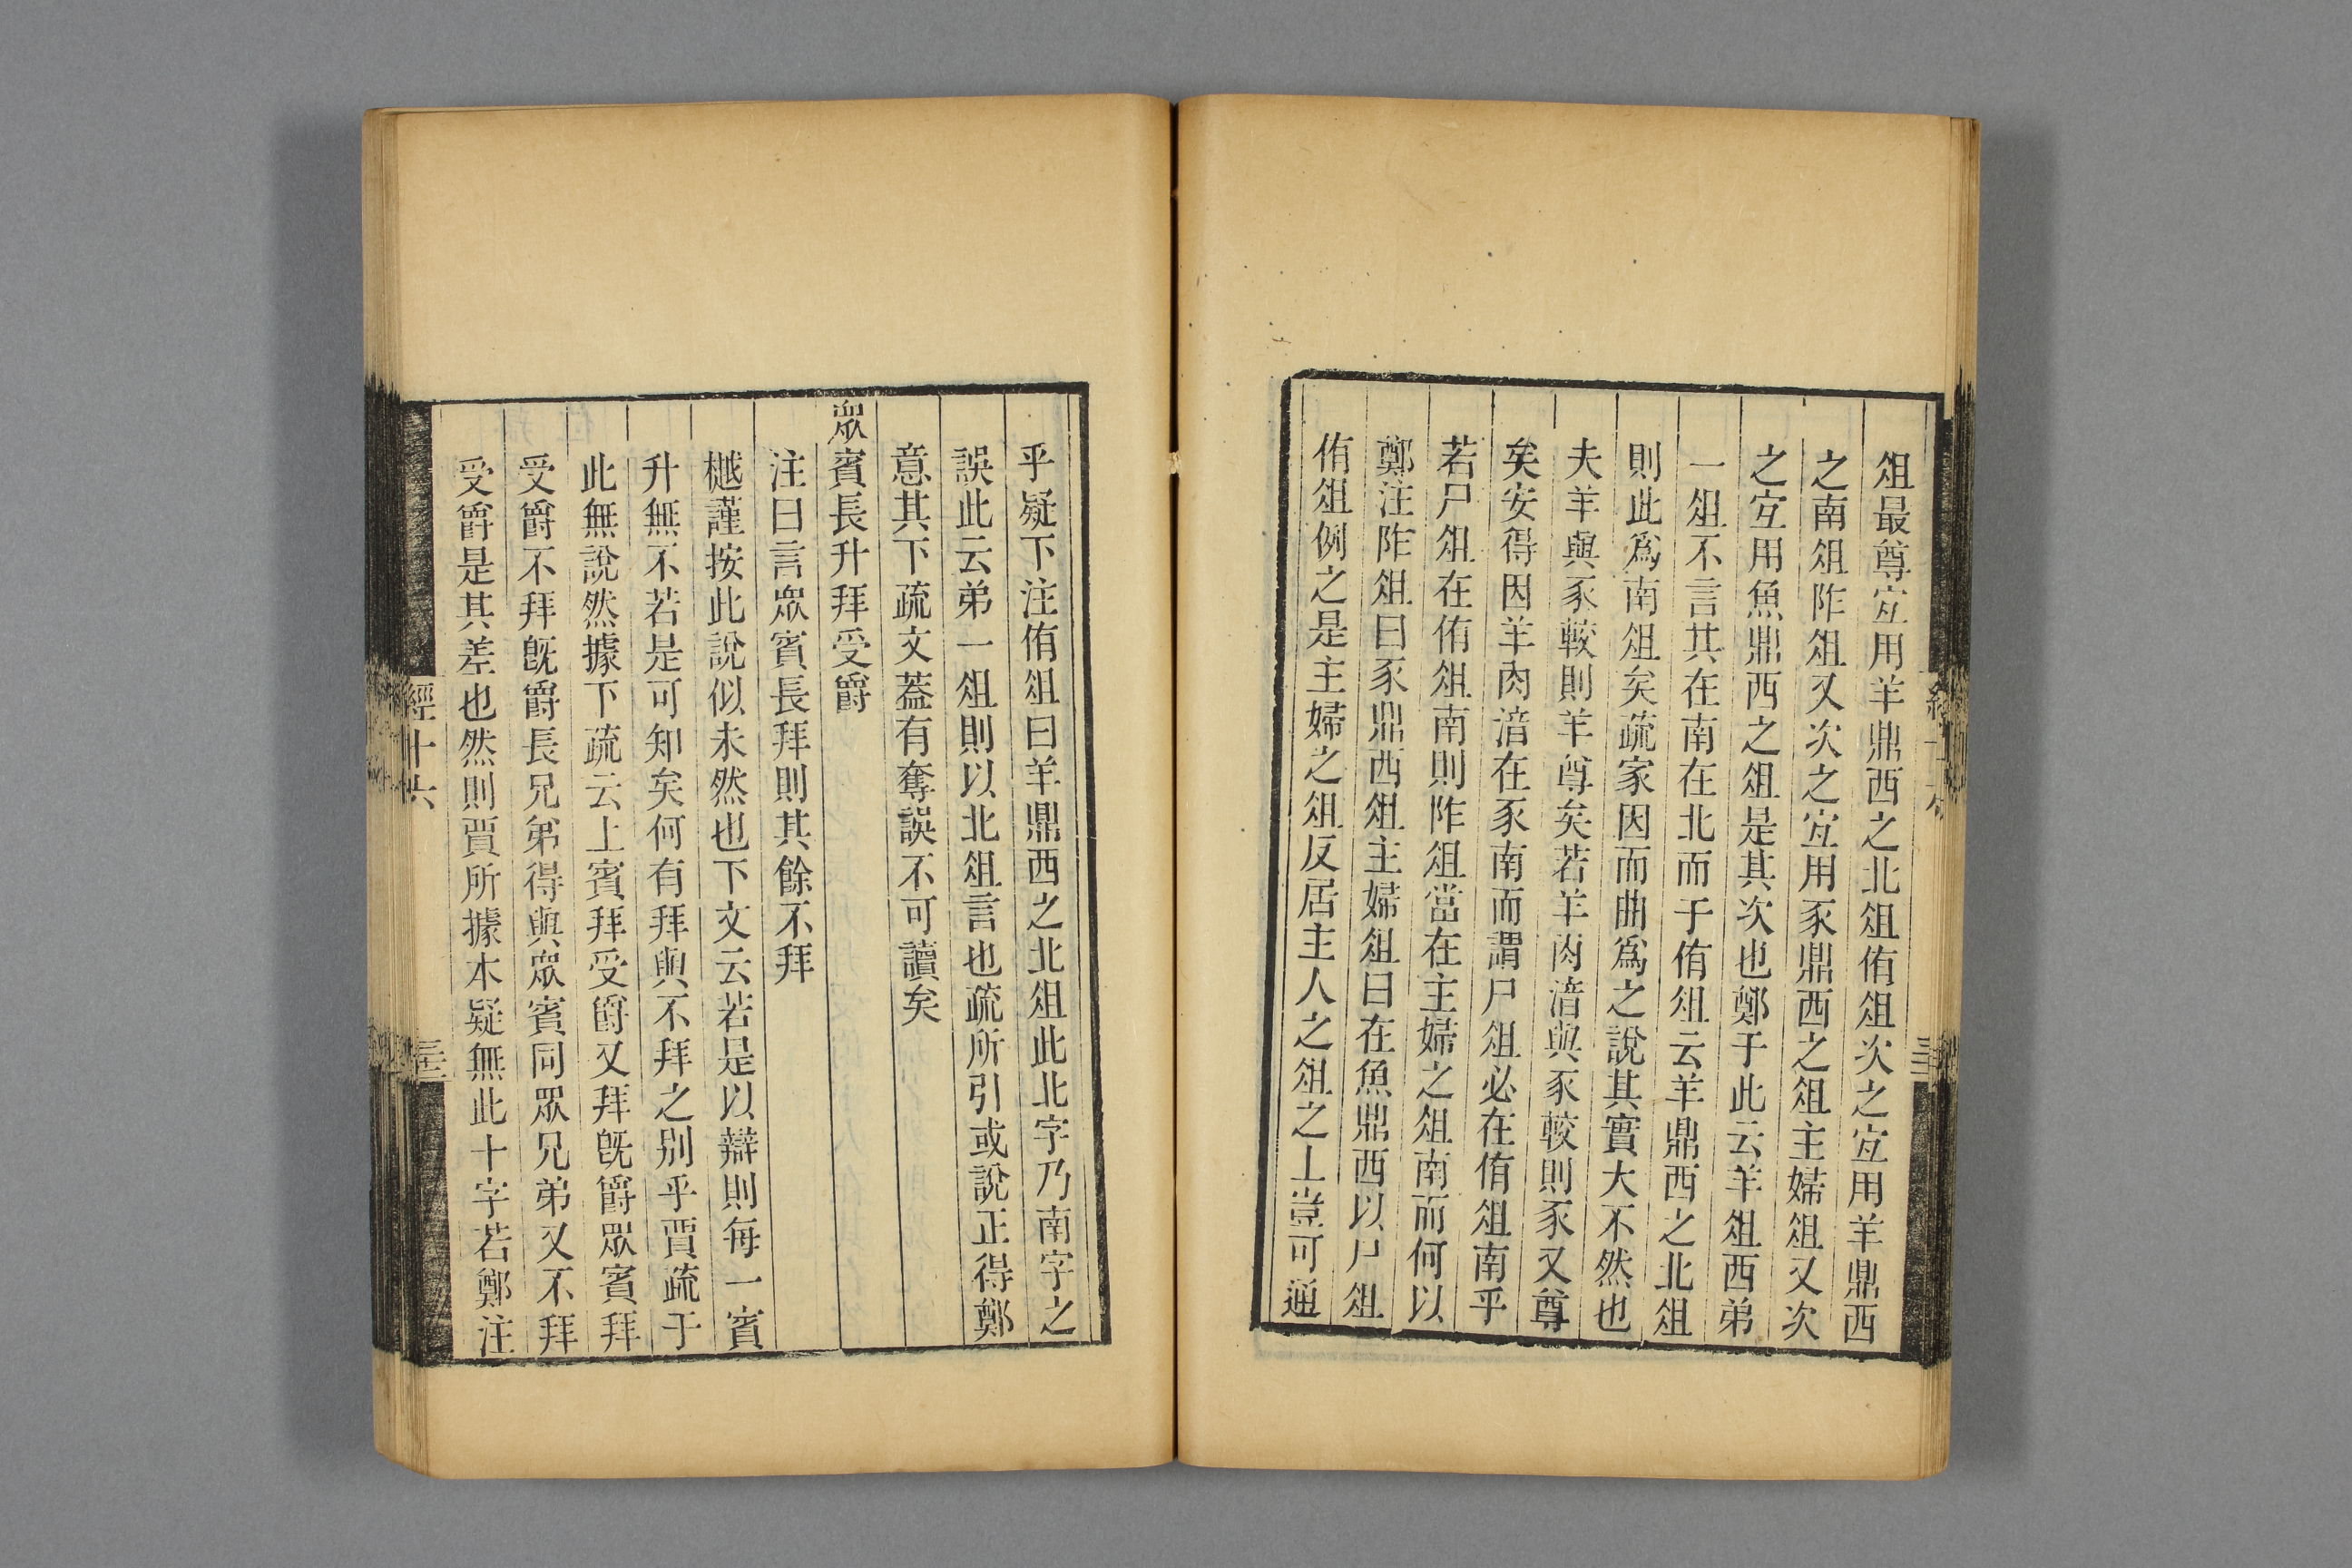 俎最尊宐用羊鼎西之北俎侑俎次之宐用羊鼎西
之南俎阼俎又次之宐用豕鼎西之俎主婦俎又次
之宐用魚鼎西之俎是其次也鄭于此云羊俎西弟
一俎不言其在南在北而于侑俎云羊鼎西之北俎
則此爲南俎矣疏家因而曲爲之說其實大不然也
夫羊與豕較則羊尊矣若羊肉湇與豕較則豕又尊
矣安得因羊肉湇在豕南而謂尸俎必在侑俎南乎
若尸俎在侑俎南則阼俎當在主婦之俎南而何以
鄭注阼俎曰豕鼎西俎主婦俎曰在魚鼎西以尸俎
侑俎例之是主婦之俎反居主人之俎之上豈可通
乎疑下注侑俎曰羊鼎西之北俎此北字乃南字之
誤此云弟一俎則以北俎言也疏所引或說正得鄭
意其下疏文葢有奪誤不可讀矣
眾賓長升拜受爵
注曰言眾賓長拜則其餘不拜
樾謹按此說似未然也下文云若是以辯則每一賓
升無不若是可知矣何有拜與不拜之别乎賈疏于
此無說然據下疏云上賓拜受爵又拜旣爵眾賓拜
受爵不拜旣爵長兄弟得與眾賓同眾兄弟又不拜
受爵是其差也然則賈所據本疑無此十字若鄭注
經十六